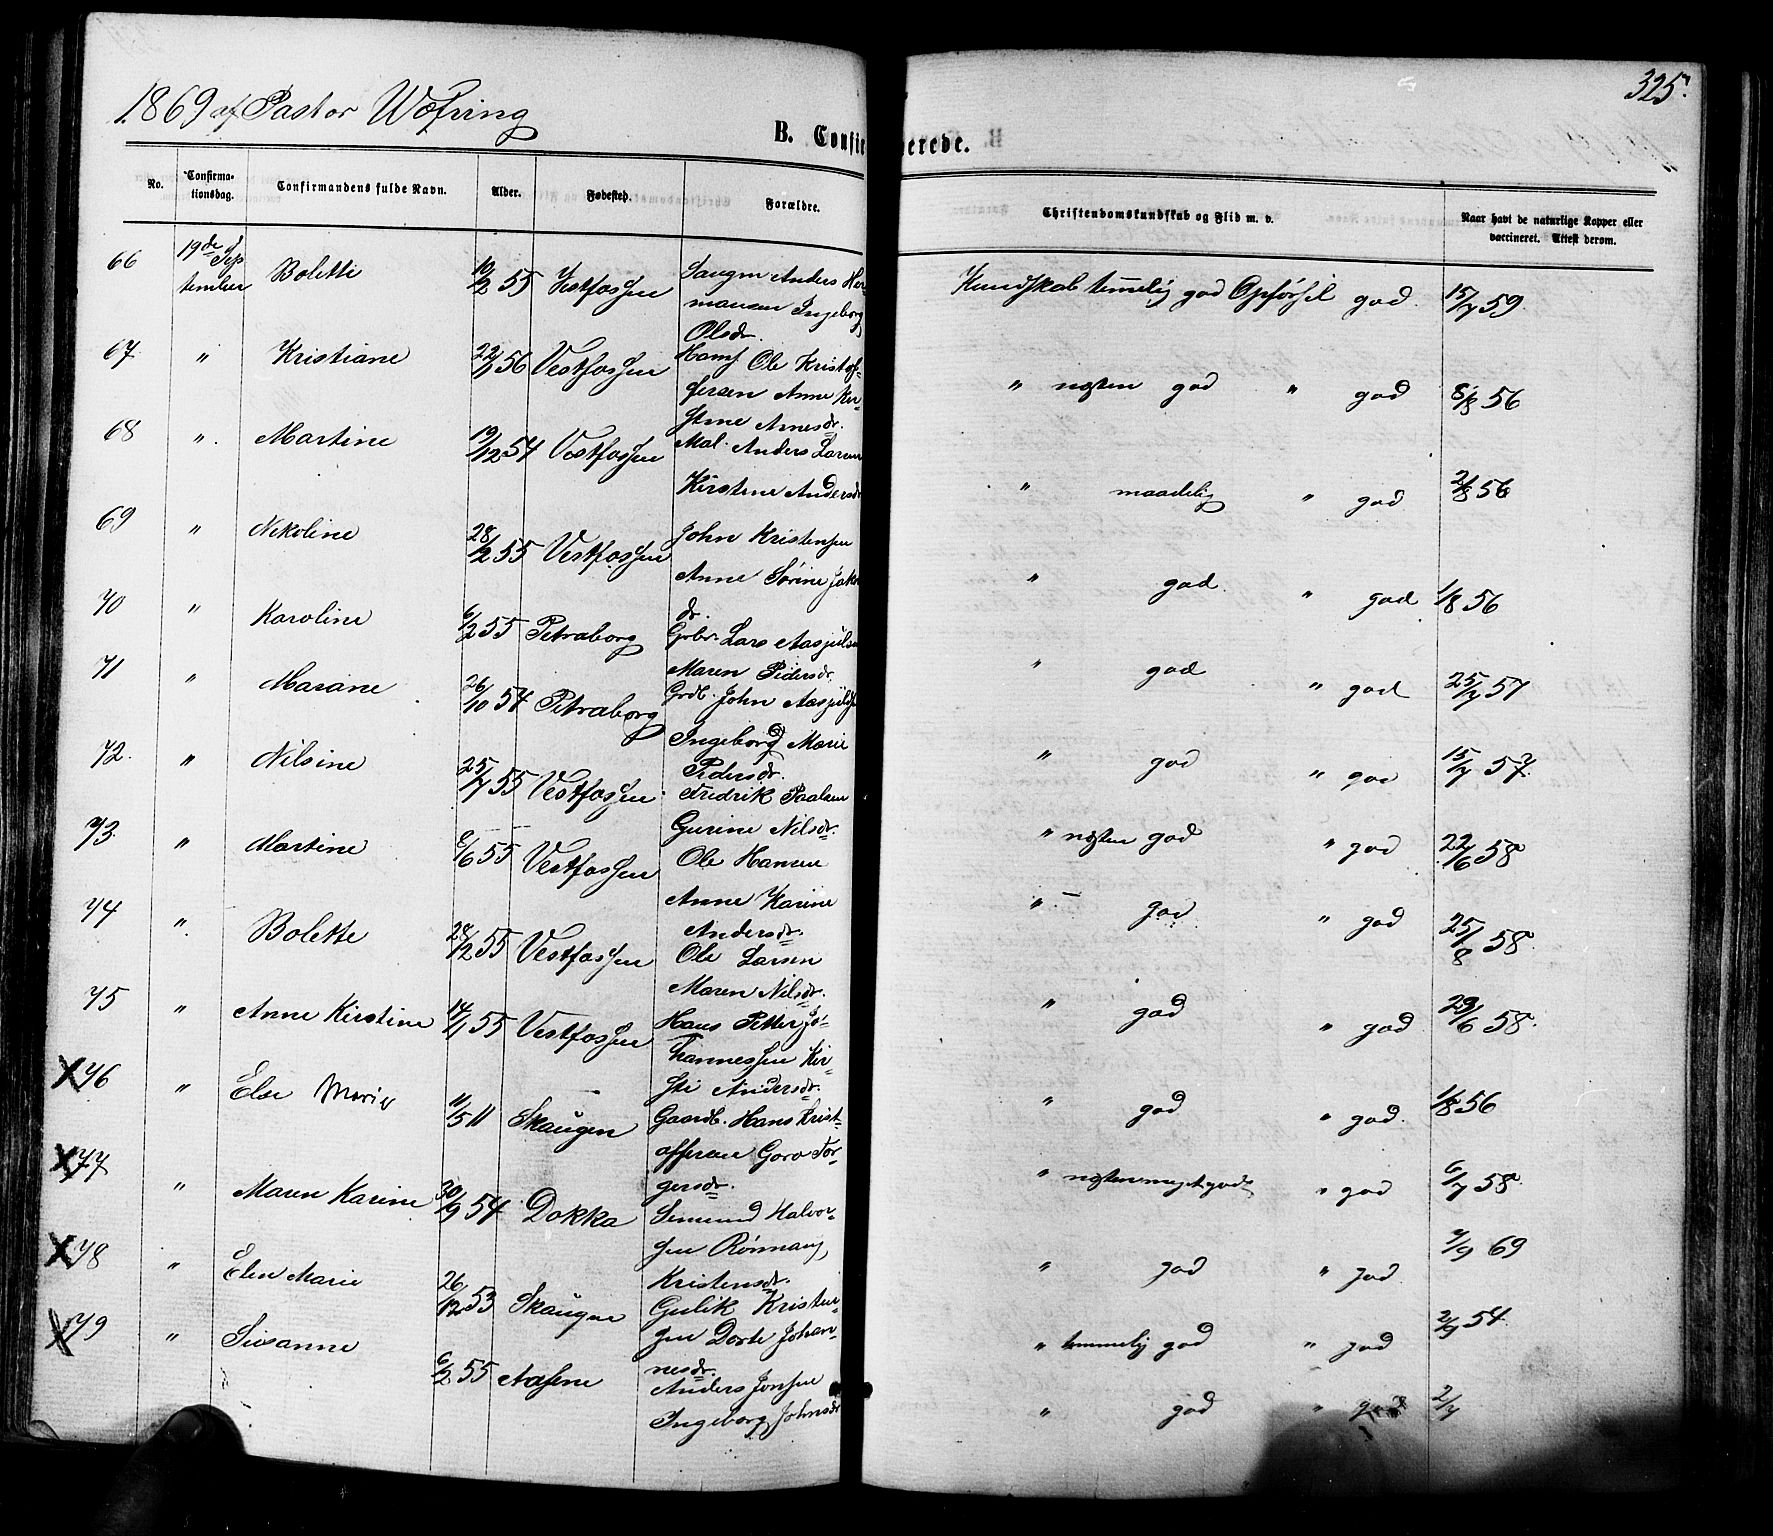 1869 af Pastor Wæfring
325.
B. Confir
erede.
No. Confirma-
tionsdag. Confirmandens fulde Navn. Alder. Fødested. Forældre. Christendomskundskab og Flid m. v. Naar havt de naturlige Kopper eller
vaccineret. Attest derom.
66 19de Sep
tember Bolette 10/2 55 Vestfossen Saugm Anders Her
mansen Ingeborg
Olsdr. Kundskab temmelig god Opførsel god. 15/7 59
67 " Kristiane 22/1 56 Vestfossen Hamf Ole Kristof-
fersen Anne Ker-
stine Arnesdr. " næsten god " god 8/8 56
68 " Martine 19/12 54 Vestfossen Mal. Anders Larsen
Kirstine Andersdr " maadelig " god 2/8 56
69 " Nikoline 28/2 55 Vestfossen John Kristensen
Anne Sørine Jakobs
dr. " god " god 1/8 56
70 " Karoline 6/2 55 Petraborg Grbr. Lars Aasjulsen
Maren Pedersdr. " god " god 25/7 57
71 " Marane 26/10 54 Petraborg Grdb. John Aasjuls
Ingeborg Marie
Pedersdr. " god " god 15/7 57
72. " Nilsine 25/7 55 Vestfossen Fredrik Paalsen
Gurine Nilsdr. " næsten god " god 22/6 58
73 " Martine 8/6 55 Vestfossen Ole Hansen
Anne Karine
Andersdr. " god " god 25/8 58
74 " Bolette 28/2 55 Vestfossen Ole Larsen
Maren Nilsdr. " god " god 29/6 58.
75 " Anne Kirstine 14/1 55 Vestfossen Hans Petter Jo-
hannessen Kir-
sti Andersdr. " god " god. 1/8 56
X 76 " Else Marie 11/5 11 Skaugen Gaardb. Hans Krist-
offersen Goro Tor-
gersdr. " næsten meget god " god 6/7 58.
X 77 " Maren Karine 30/9 54 Dokka Simund Halvor-
sen Rønnaug
Kristensdr. " god " god 2/9 69
X 78 " Elen Marie 26/12 53 Skaugen Gulik Kristen-
sen Dorte Johan-
nesdr. " temmelig god " god 2/9 54
X 79 " Susanne 6/2 55 Aasene Anders Jonsen
Ingeborg Johnsdr " god " god 2/7